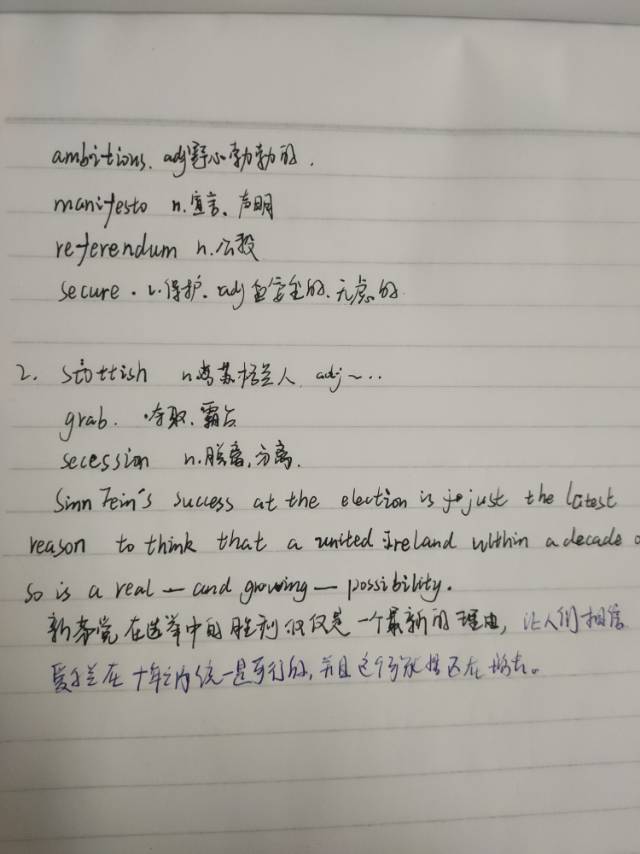 ambitions. adj野心勃勃的.
manifesto n.宣言、声明
referendum n.公投
secure. v.保护. adj 安全的、无虑的
2. Stottish n 苏格兰人 adj~...
grab. 夺取.霸占
secession n.脱离,分离.
Sinn Fein's success at the election is just the latest
reason to think that a united Ireland within a decade o
so is a real — and growing — possibility.
新芬党在选举中的胜利仅仅是一个最新的理由, 让人们相信
爱尔兰在十年之内统一是可行的, 并且这个可能性还在增长。